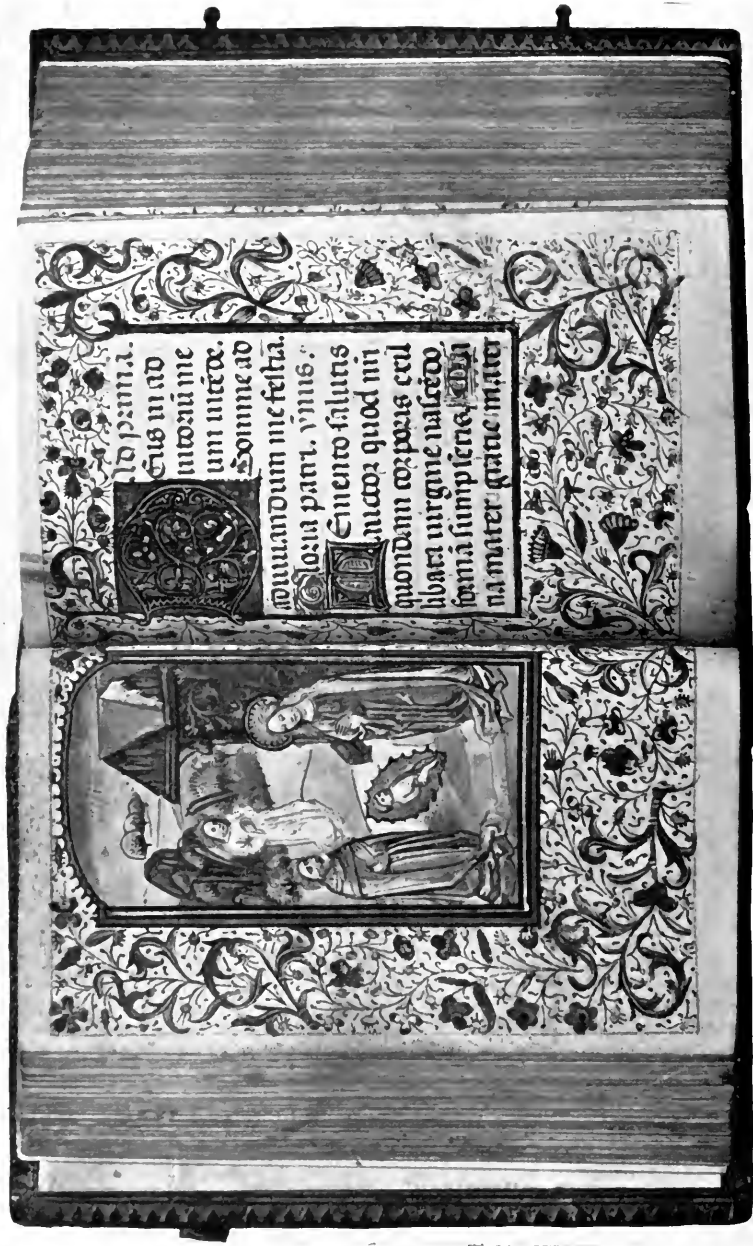 Ad prima.
Eus in ad
iutoriū me
um intēde.
Domine ad
adiuuandum me festīa.
Gloria patri. ymus.
Memento salutis
auctor quod nr̄i
quondam corporis exil
libata uirgine nascēdo
formā sumpseris. Ma
ria mater gratie mater